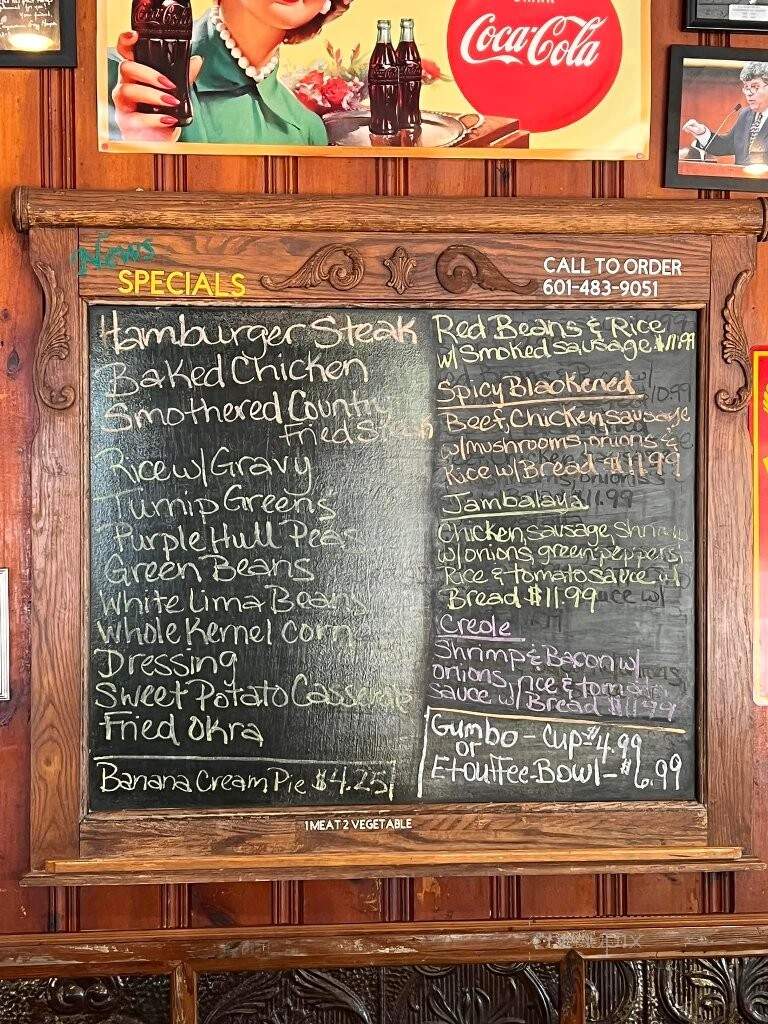 DRINK
Coca-Cola
News
SPECIALS
CALL TO ORDER
601-483-9051
Hamburger Steak
Baked Chicken
Smothered Country
Fried Steak
Rice w/ Gravy
Turnip Greens
Purple Hull Peas
Green Beans
White Lima Beans
Whole Kernel Corn
Dressing
Sweet Potato Casserole
Fried Okra
Banana Cream Pie $4.25
Red Beans & Rice
w/ Smoked sausage $11.99
Spicy Blackened
Beef, Chicken, sausage
w/mushrooms, onions &
Rice w/ Bread $11.99
Jambalaya
Chicken, sausage, shrimp
w/onions, green peppers,
Rice & tomato sauce w/
Bread $11.99
Creole
Shrimp & Bacon w/
onions, rice & tomato
sauce w/ Bread $11.99
Gumbo - Cup $4.99
or
Etouffee - Bowl - $6.99
1 MEAT 2 VEGETABLE